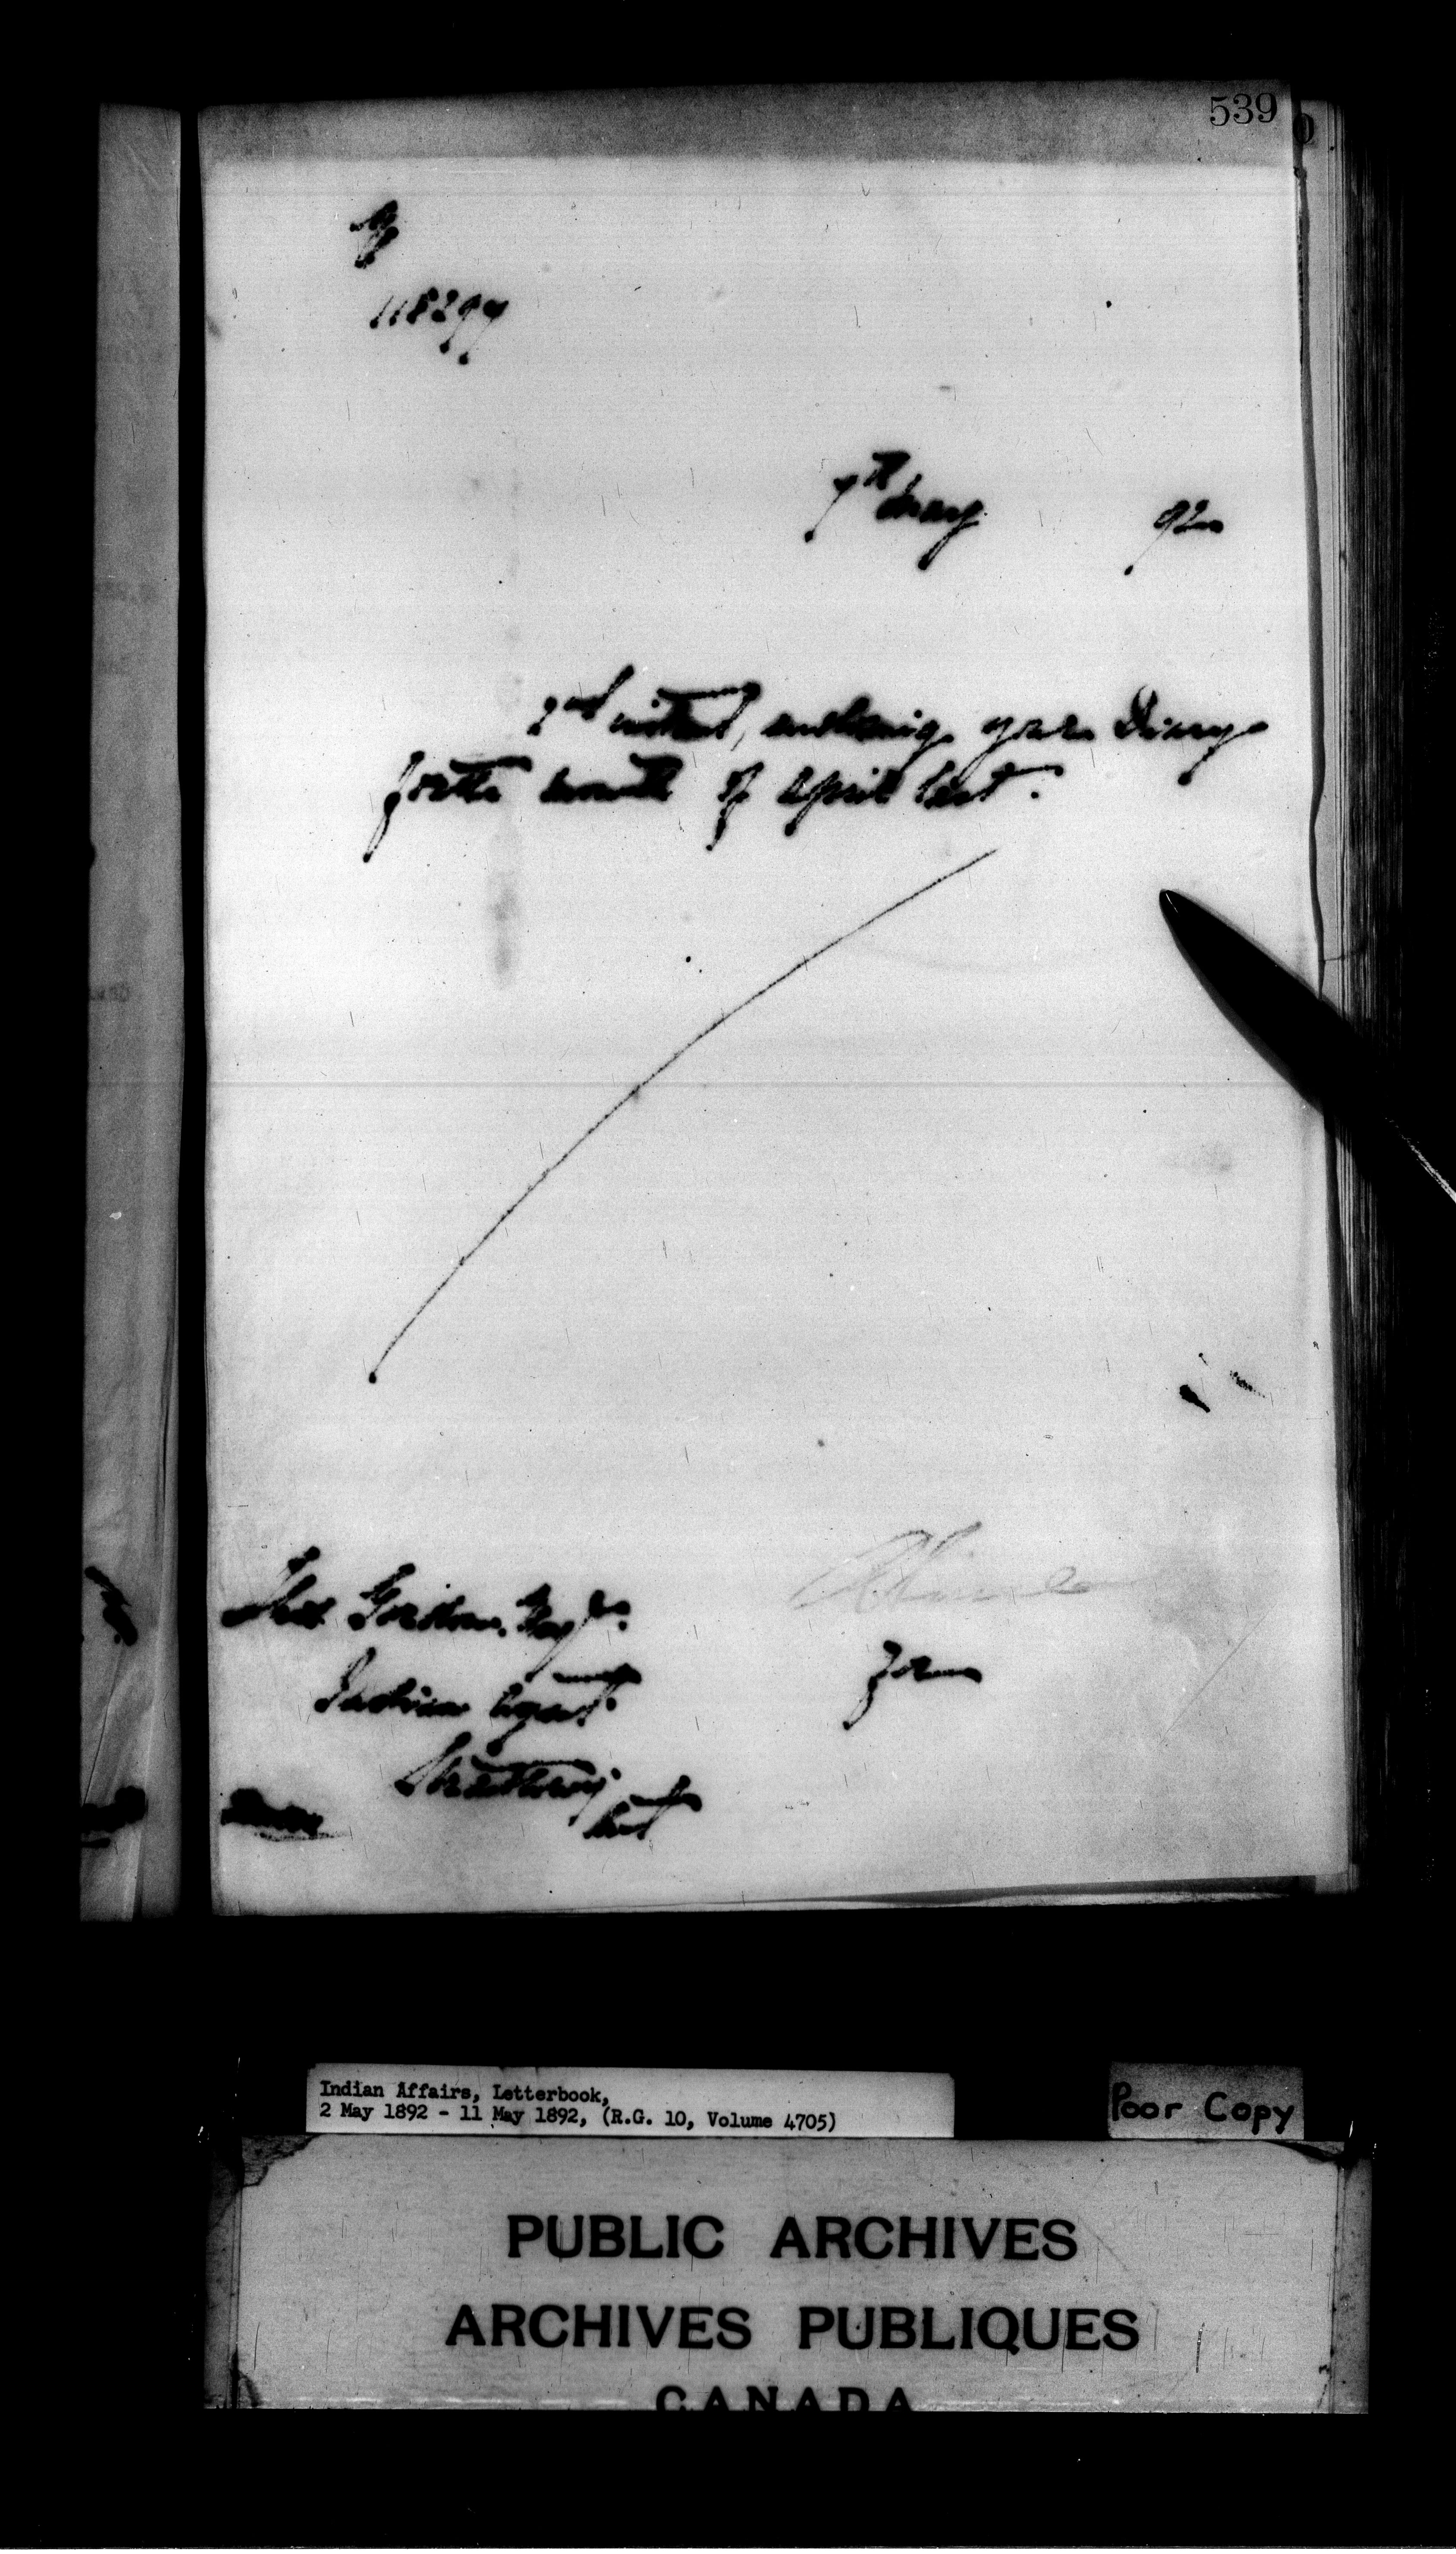 539
118297
7th May 92
2nd instant, enclosing your Diary
for the month of April last.
Thos Gordon, Esqre.
Indian Agent.
Strathroy
Ont
for
Indian Affairs, Letterbook,
2 May 1892 - 11 May 1892, (R.G. 10, Volume 4705)
Poor Copy
PUBLIC ARCHIVES
ARCHIVES PUBLIQUES
CANADA